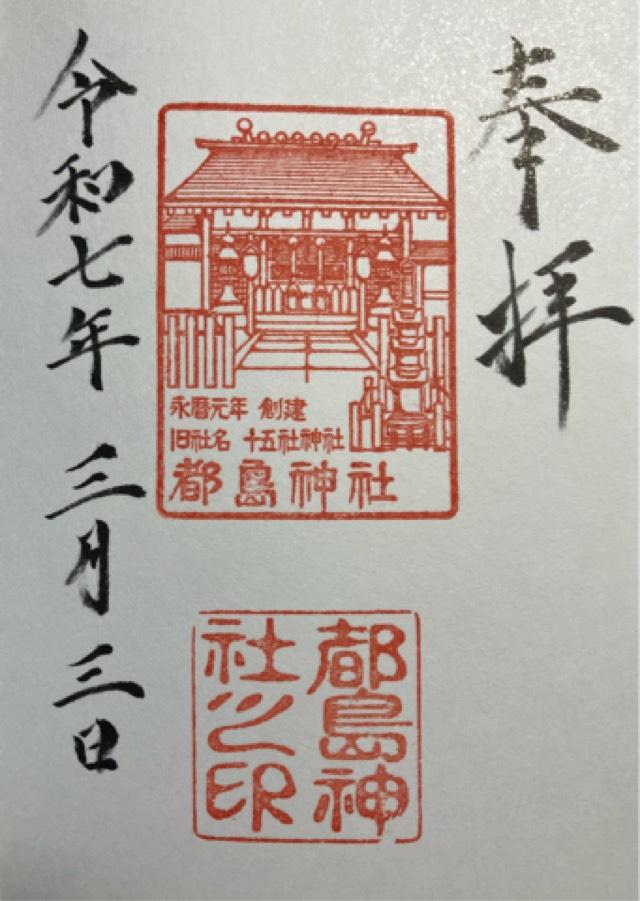 奉拝
永暦元年 創建
旧社名 十五社神社
都島神社
都島神
社之印
令和七年 三月三日